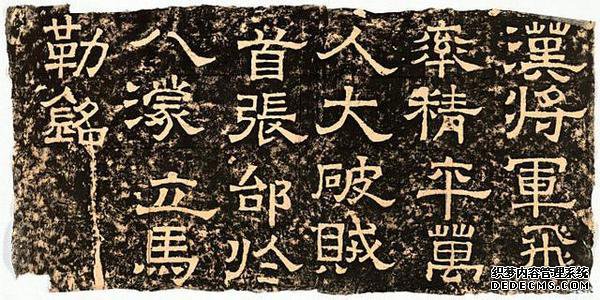 漢將軍飛
率精卒萬
人大破賊
首張郃於
八濛立馬
勒銘
织梦内容管理系统
DEDECMS.COM